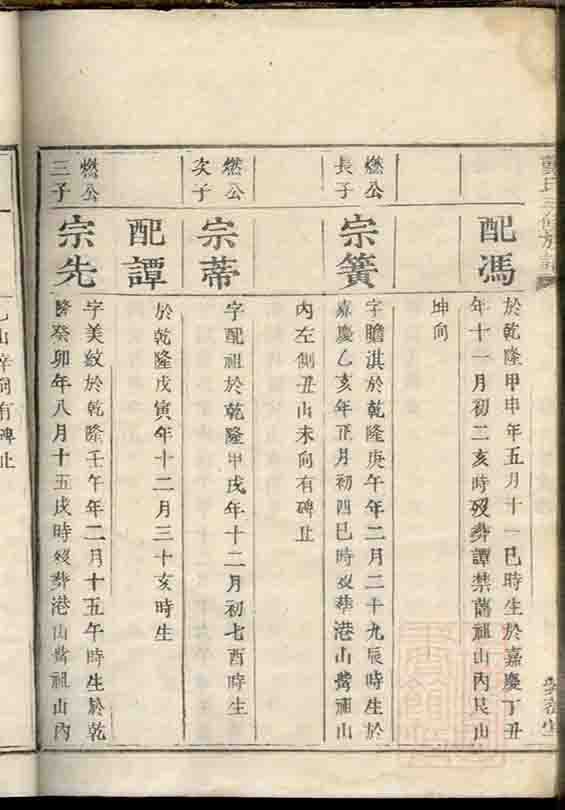 配馮
於乾隆甲申年五月十一巳時生於嘉慶丁丑
年十一月初二亥時歿葬譚禁舊祖山內艮山
坤向
燃公
長子
宗簧
字膽淇於乾隆庚午年二月二十九辰時生於
嘉慶乙亥年正月初四巳時歿葬港山嘴祖山
內左側丑山未向有碑止
燃公
次子
宗蒂
字配祖於乾隆甲戌年十二月初七酉時生
配譚
於乾隆戊寅年十二月三十亥時生
燃公
三子
宗先
字美紋於乾隆壬午年二月十五午時生於乾
隆癸卯年八月十五戌時歿葬港山嘴祖山內
山辛向有碑止